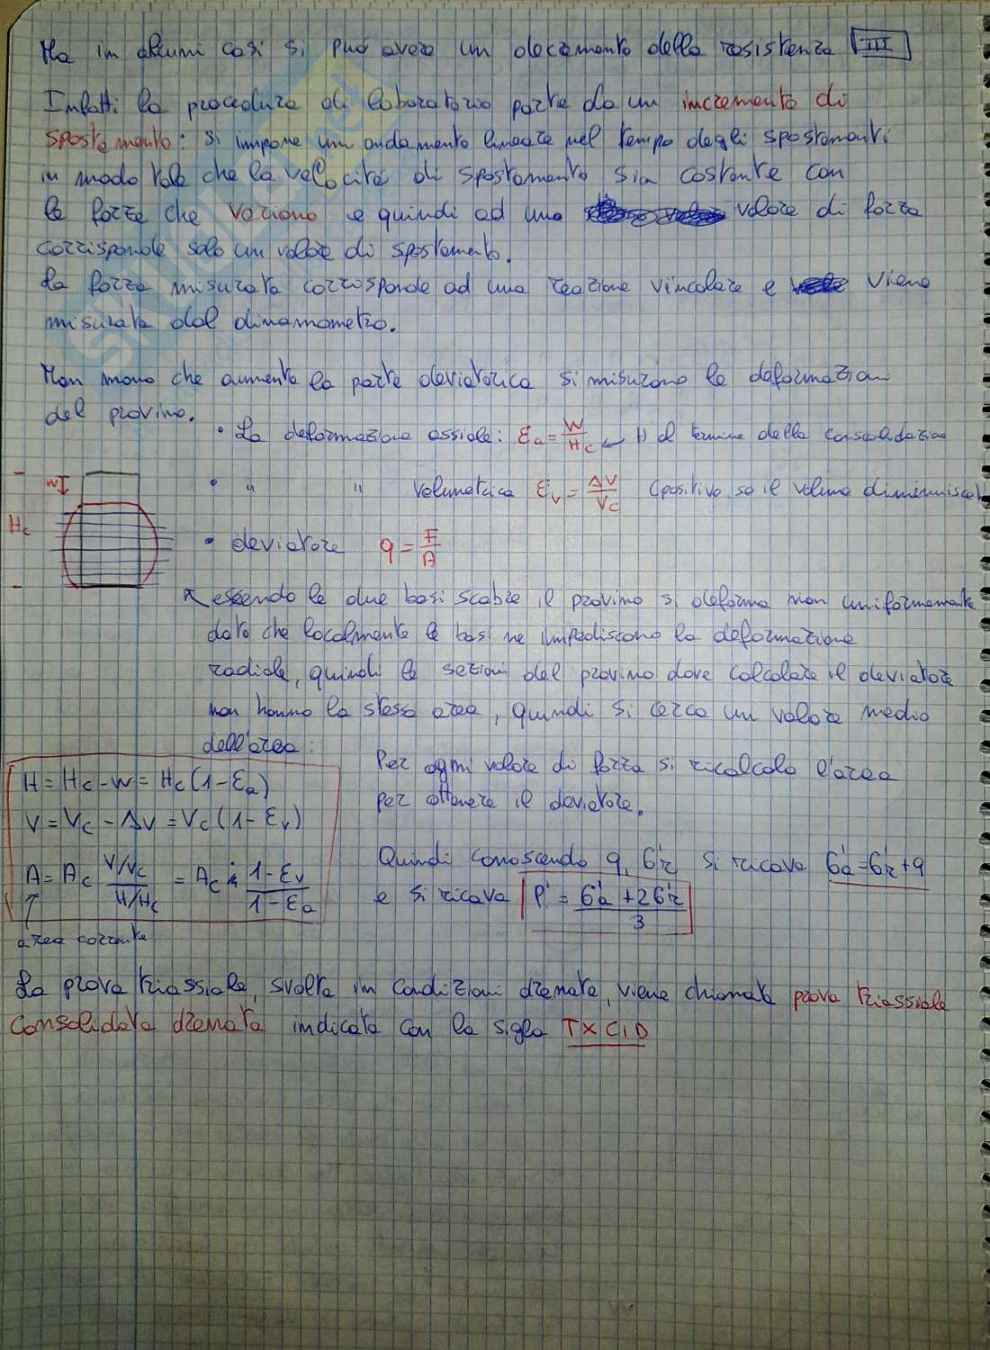 Ma in alcuni casi si può avere un decremento della resistenza III
Infatti la procedura di laboratorio parte da un incremento di
spostamento: si impone un andamento lineare nel tempo degli spostamenti
in modo tale che la velocità di spostamento sia costante con
le forze che variano e quindi ad una valore di forza
corrisponde solo un valore di spostamento.
La forza misurata corrisponde ad una reazione vincolare e viene
misurata dal dinamometro.
Man mano che aumenta la parte deviatorica si misurano le deformazioni
del provino.
• La deformazione assiale: εa = W/Hc ← H al termine della consolidazione
• " " volumetrica εv = ΔV/Vc (positivo se il volume diminuisce)
W
Hc
• deviatore q = F/A
essendo le due basi scabre il provino si deforma non uniformemente
dato che localmente le basi ne impediscono la deformazione
radiale, quindi le sezioni del provino dove calcolare il deviatore
non hanno la stessa area, quindi si cerca un valore medio
dell'area:
H = Hc - W = Hc (1 - εa)
V = Vc - ΔV = Vc (1 - εv)
A = Ac (V/Vc)/(H/Hc) = Ac · (1 - εv)/(1 - εa)
↑
area corrente
Per ogni valore di forza si ricalcola l'area
per ottenere il deviatore.
Quindi conoscendo q, σ'r si ricava σ'a = σ'r + q
e si ricava P' = (σ'a + 2σ'r)/3
La prova triassiale, svolta in condizioni drenate, viene chiamata prova triassiale
consolidata drenata indicata con la sigla TX CID